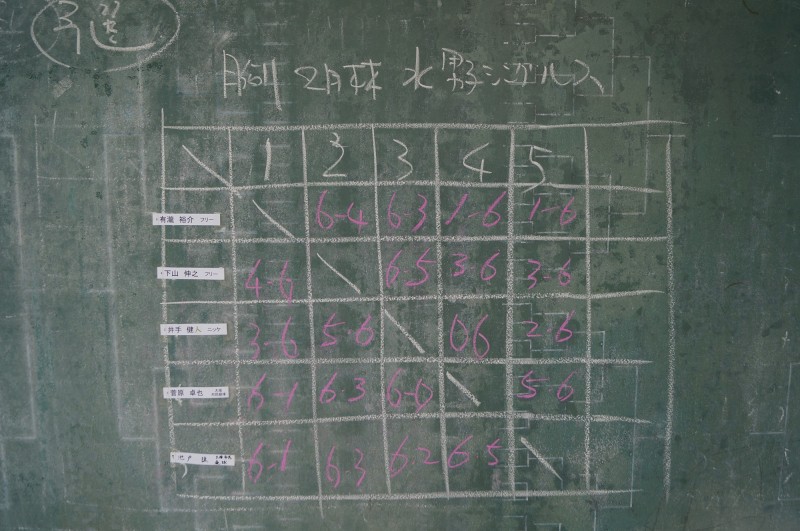 予選
2月 水 男子シングルス
1 2 3 4 5
有瀧 裕介 フリー 6-4 6-3 1-6 1-6
下山 伸之 フリー 4-6 6-5 3-6 3-6
井手 健人 ニッケ 3-6 5-6 0-6 2-6
菅原 卓也 6-1 6-3 6-0 5-6
6-1 6-3 6-2 6-5